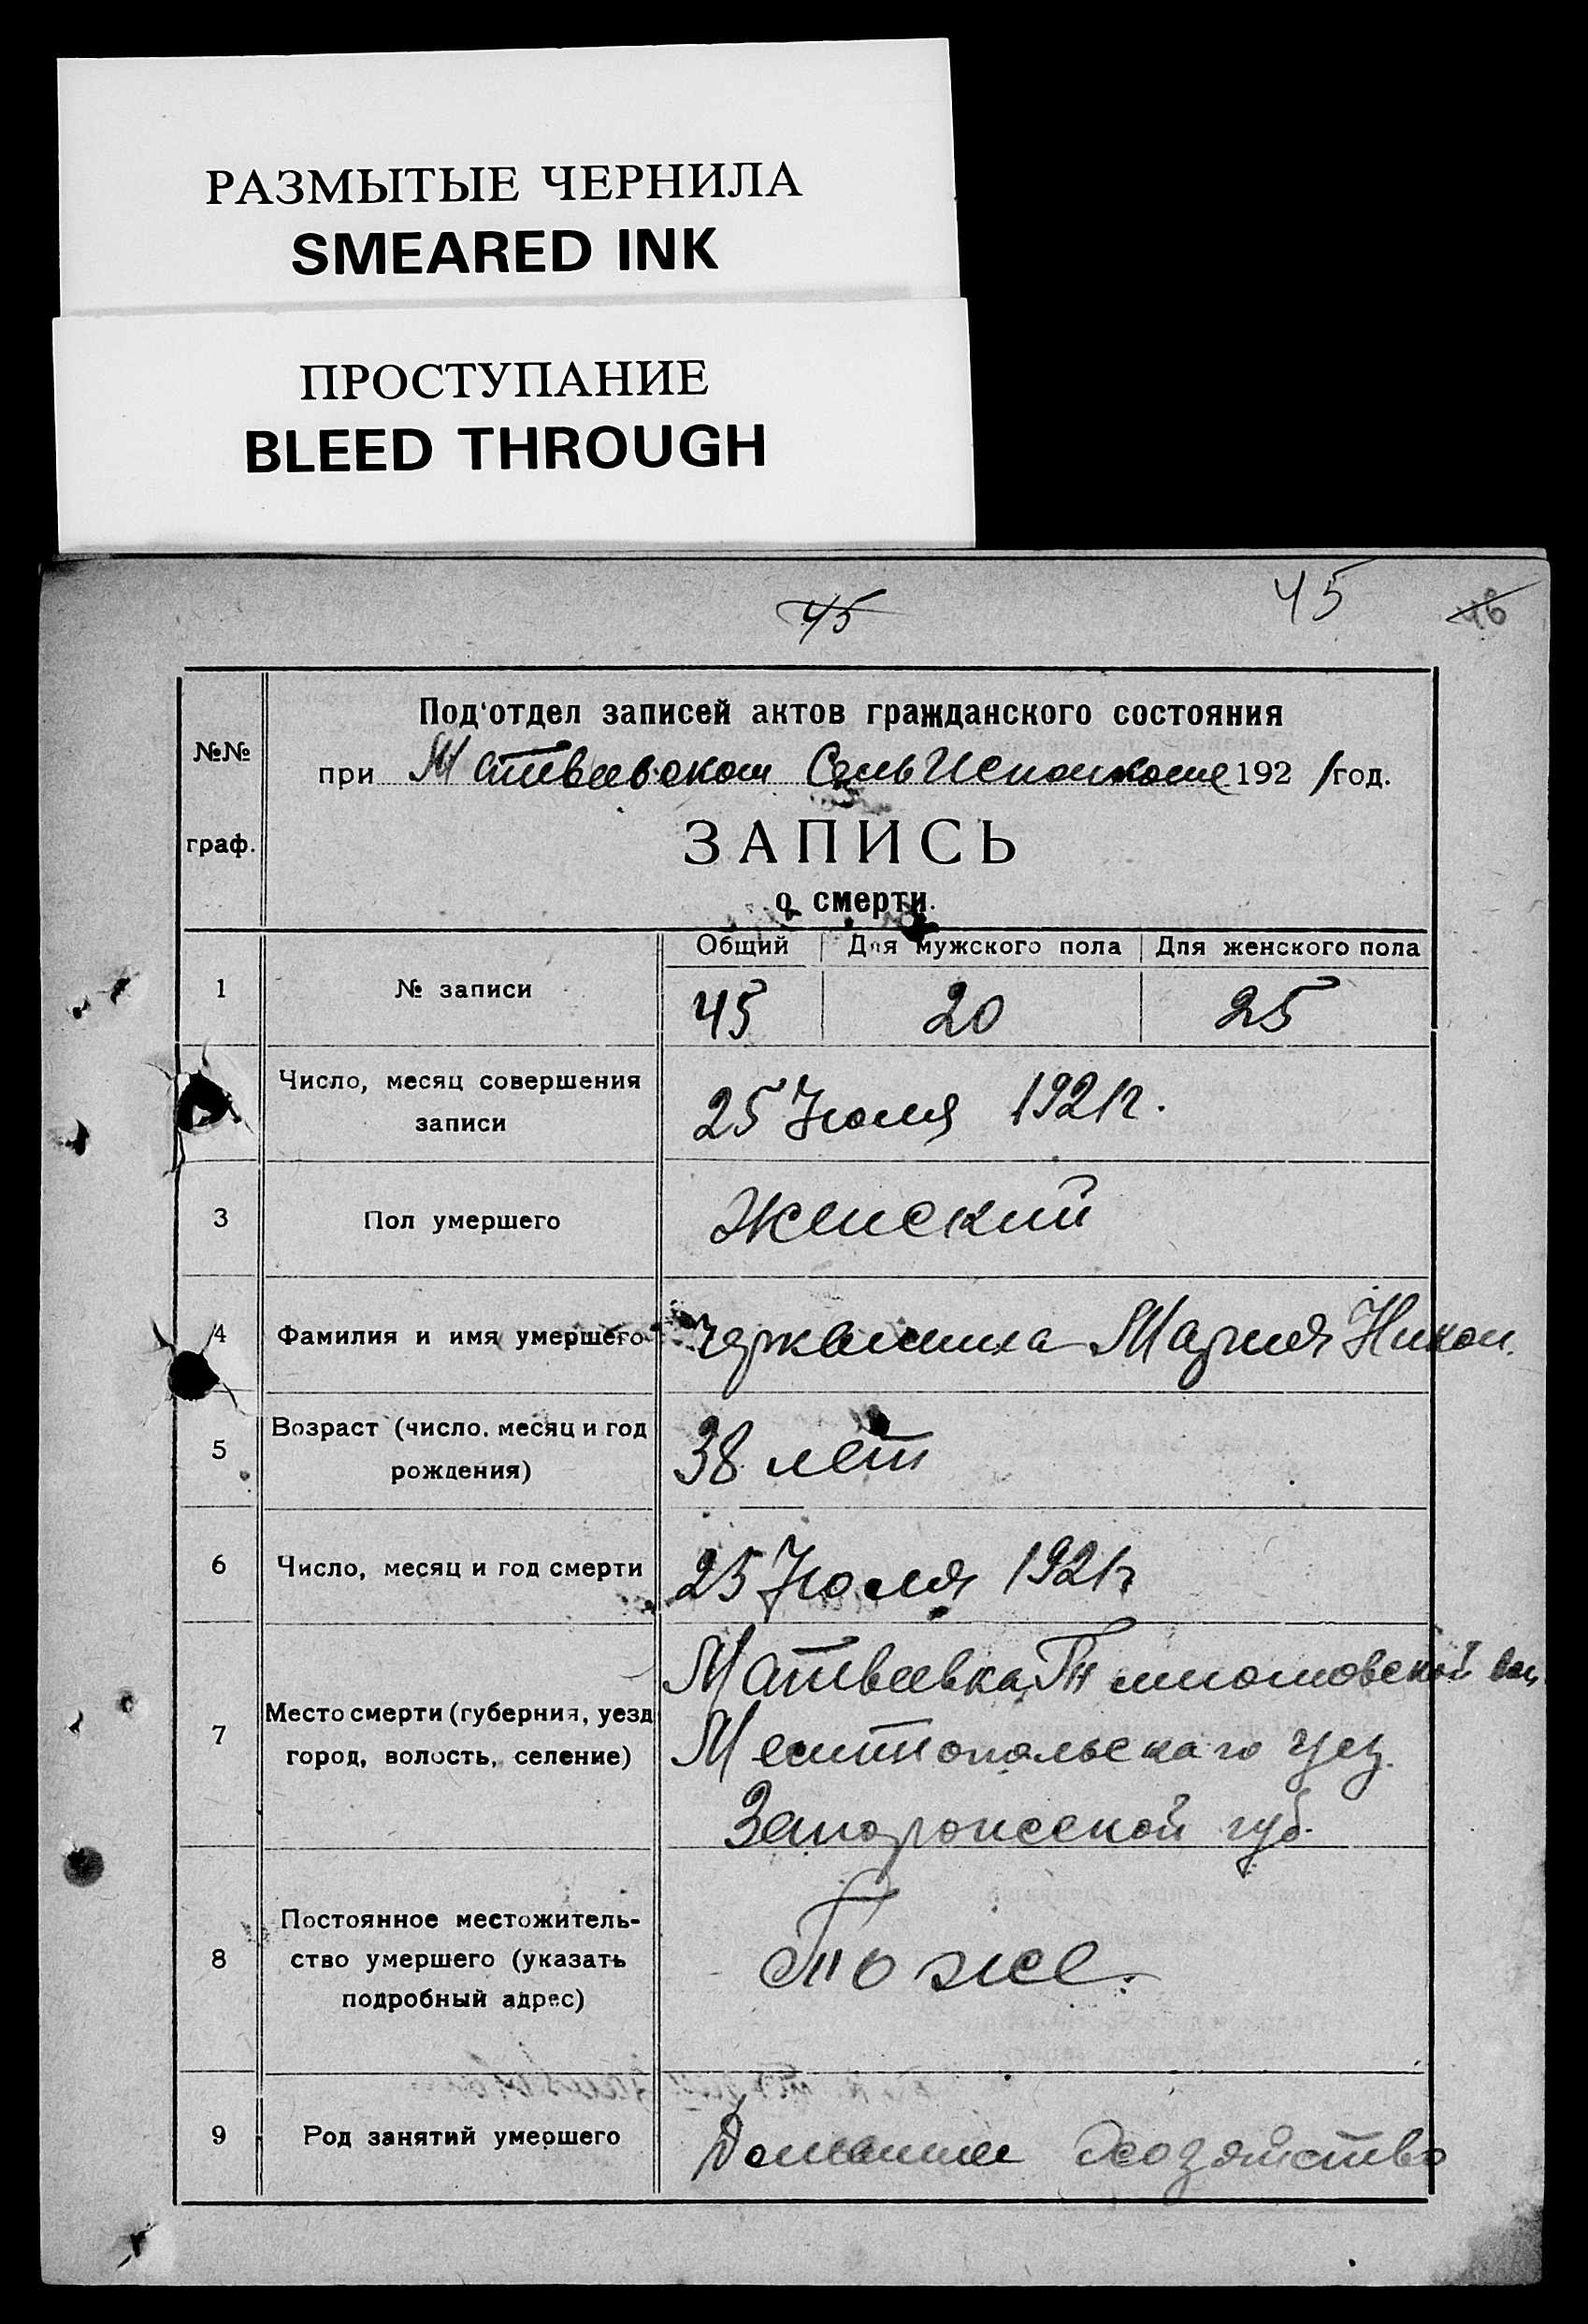 РАЗМЫТЫЕ ЧЕРНИЛА
SMEARED INK
ПРОСТУПАНИЕ
BLEED THROUGH
45 45 46
Под'отдел записей актов гражданского состояния
№№ при Матвеевском СельИсполкоме 1921 год.
граф.
ЗАПИСЬ
о смерти.
Общий Для мужского пола Для женского пола
1 № записи 45 20 25
Число, месяц совершения
записи
25 Июля 1921 г.
3 Пол умершего Женский
4 Фамилия и имя умершего Мария Никол.
5 Возраст (число, месяц и год
рождения)
38 лет
6 Число, месяц и год смерти 25 Июля 1921 г
7 Место смерти (губерния, уезд
город, волость, селение)
Матвеевка вол.
Мелитопольскаго уез.
Запорожской губ.
8 Постоянное местожитель-
ство умершего (указать
подробный адрес)
То же.
9 Род занятий умершего Домашнее Хозяйство